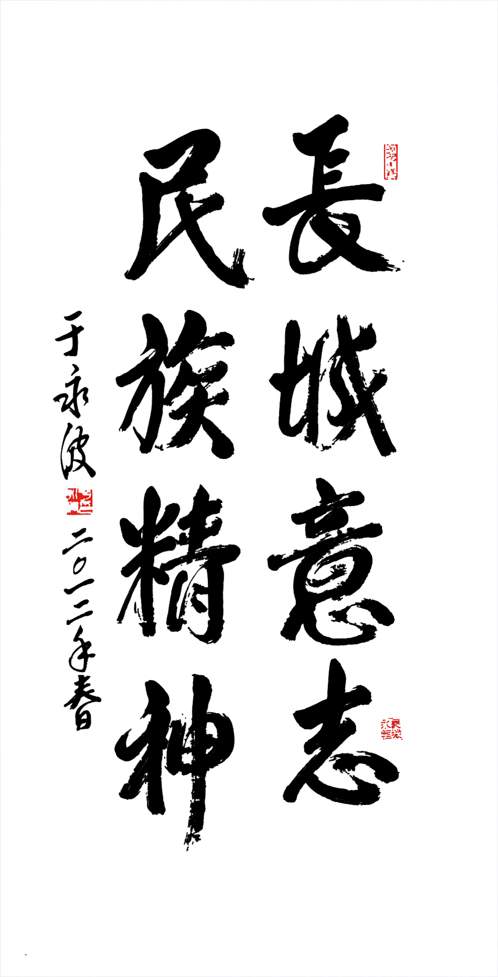 長城意志
民族精神
于永波
二〇一二年春